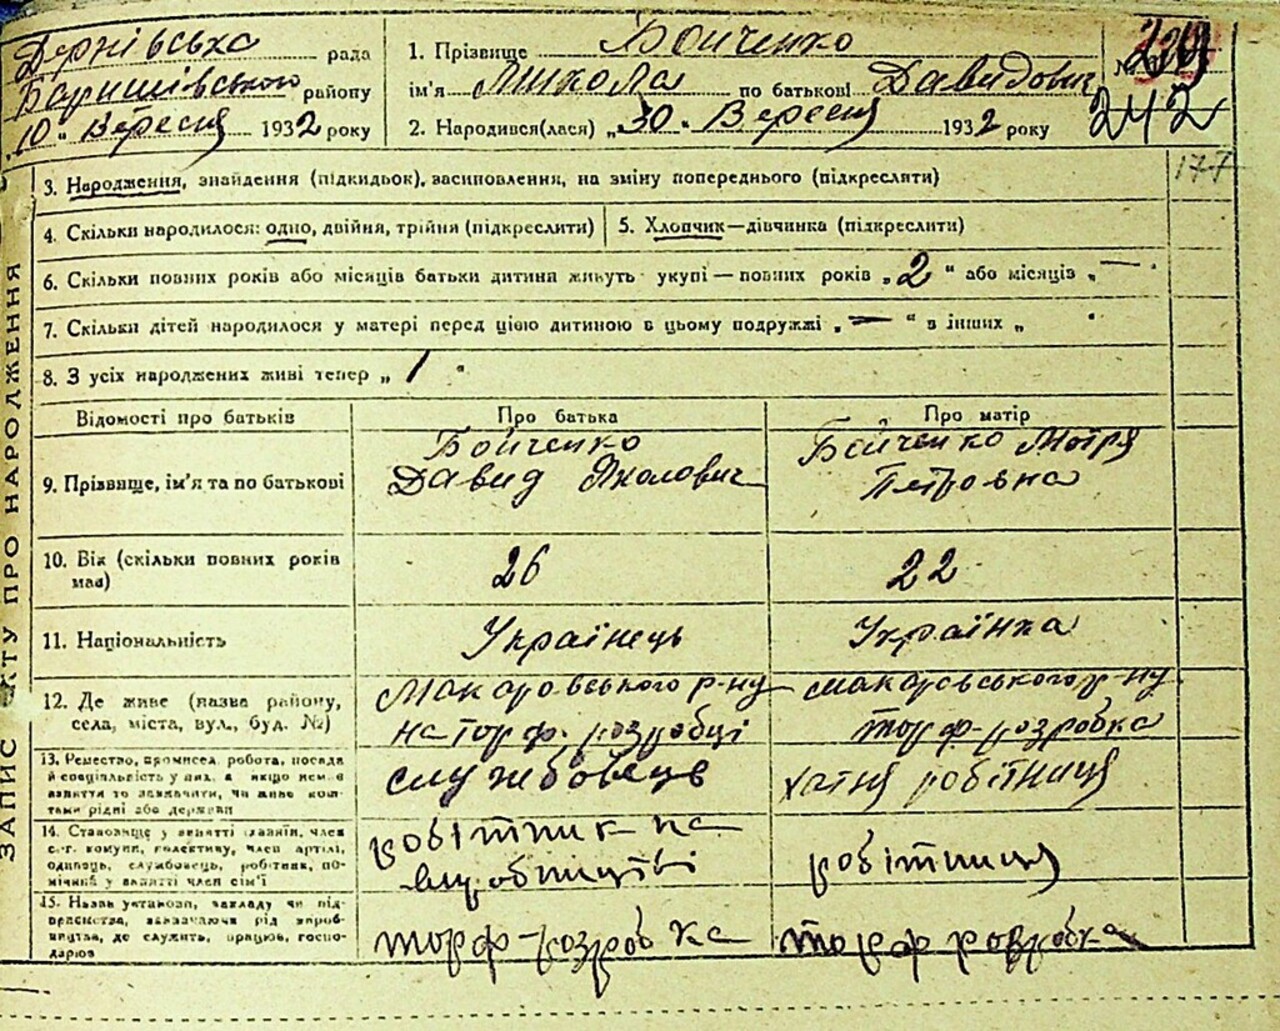 Дернівська рада
Баришівського району
"10" Вересня 1932 року
1. Прізвище Бойченко
ім'я Микола по батькові Давидович
2. Народився(лася) "30" Вересня 1932 року
№
242
177
ЗАПИС АКТУ ПРО НАРОДЖЕННЯ
3. Народження, знайдення (підкидьок), засиновлення, на зміну попереднього (підкреслити)
4. Скільки народилося: одно, двійня, трійня (підкреслити)
5. Хлопчик—дівчинка (підкреслити)
6. Скільки повних років або місяців батьки дитини живуть укупі — повних років „2" або місяців „—"
7. Скільки дітей народилося у матері перед цією дитиною в цьому подружжі „—" в інших „ "
8. З усіх народжених живі тепер „1"
Відомості про батьків
Про батька
Про матір
9. Прізвище, ім'я та по батькові
Бойченко
Давид Яколович
Бойченко Мотря
Петровна
10. Вік (скільки повних років
мав)
26
22
11. Національність
Українець
Українка
12. Де живе (назва району,
села, міста, вул., буд. №)
Макаровського р-ну
на торф. розробці
Макаровського р-ну
торф-розробка
13. Ремество, промисел, робота, посада
й спеціяльність у них, а якщо нема
заняття то зазначити, чи живе кош-
тами рідні або держави
службовець
хатня робітниця
14. Становище у занятті (хазяїн, член
с.-г. комуни, колективу, член артілі,
одинець, службовець, робітник, по-
мічник у занятті член сім'ї
робітник на
виробництві
робітниця
15. Назва установи, закладу чи під-
приємства, зазначаючи рід вироб-
ництва, де служить, працює, госпо-
дарює
торф-розробка
торф розробка